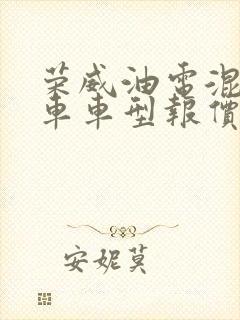 荣威油电混
车车型报價
安妮莫